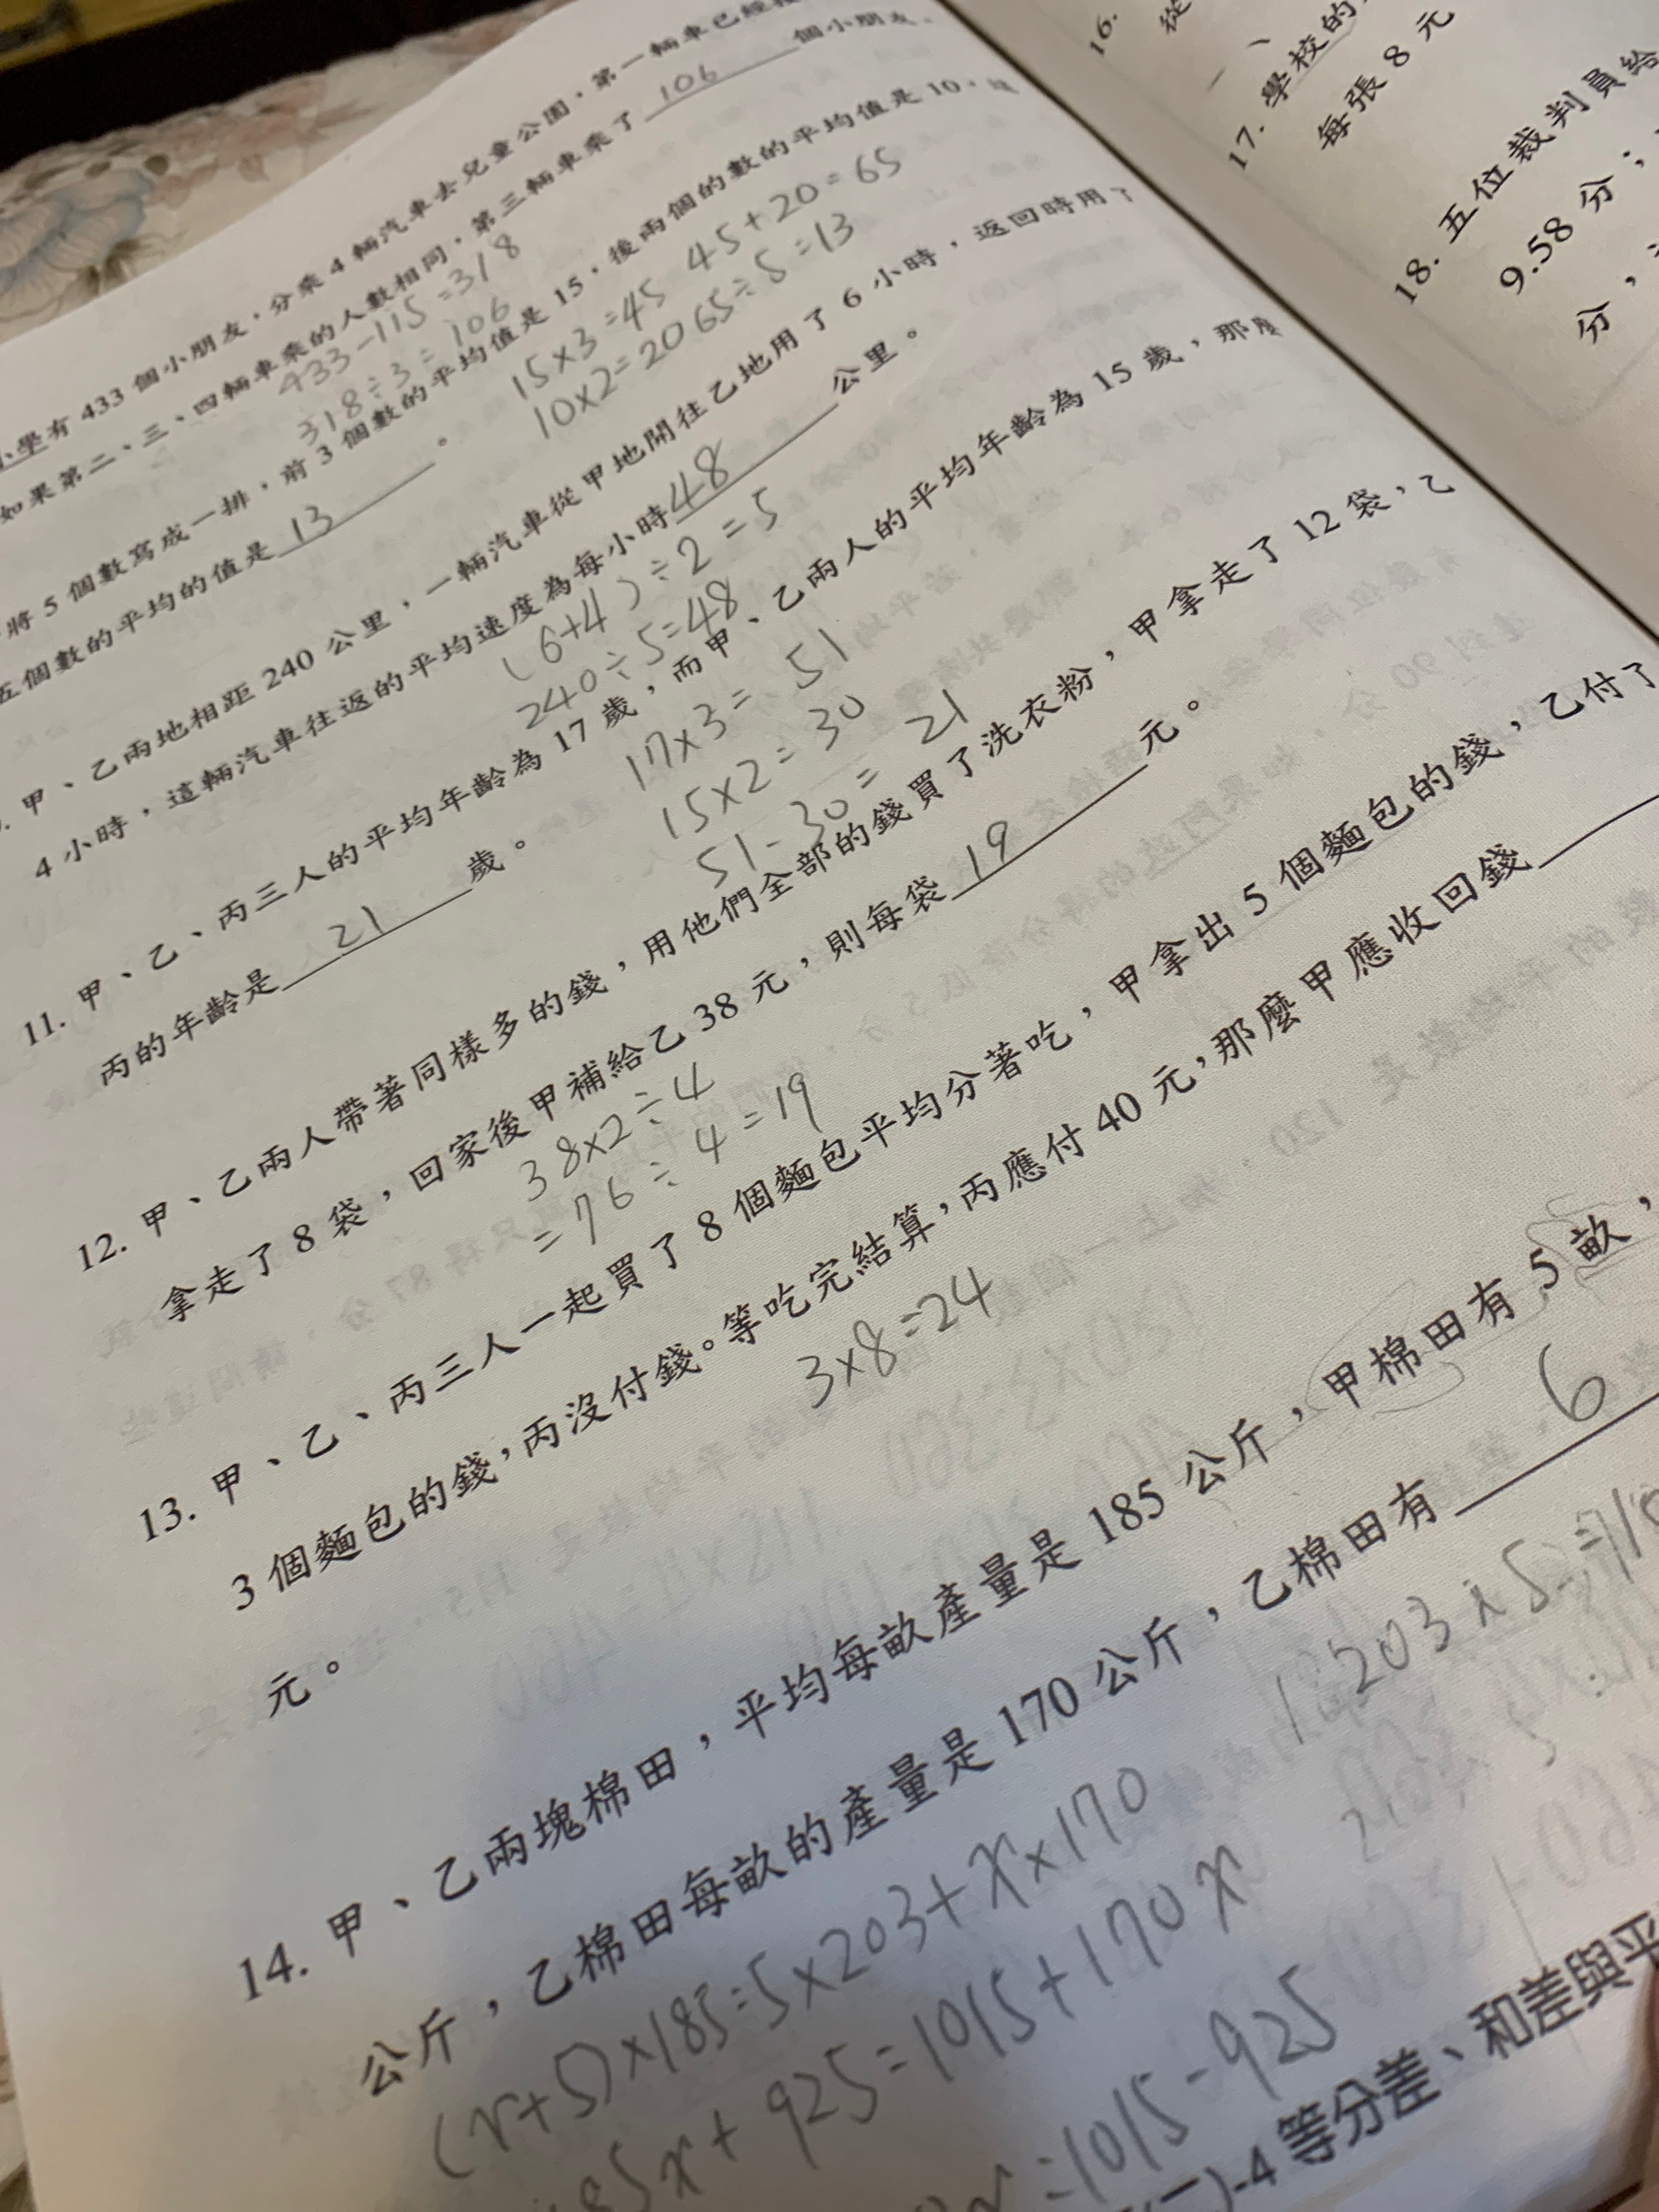 小學有 433 個小朋友，分乘 4 輛汽車去兒童公園，第一輛車已經
如果第二、三、四輛車乘的人數相同，第三輛車乘了 106 個小朋友。
433-115=318
318÷3=106
將 5 個數寫成一排，前 3 個數的平均值是 15，後兩個的數的平均值是 10，
五個數的平均的值是 13 。
15×3=45 45+20=65
10×2=20 65÷5=13
甲、乙兩地相距 240 公里，一輛汽車從甲地開往乙地用了 6 小時，返回時用了
4 小時，這輛汽車往返的平均速度為每小時 48 公里。
(6+4)÷2=5
240÷5=48
11. 甲、乙、丙三人的平均年齡為 17 歲，而甲、乙兩人的平均年齡為 15 歲，那麼
丙的年齡是 21 歲。
17×3=51
15×2=30
51-30=21
12. 甲、乙兩人帶著同樣多的錢，用他們全部的錢買了洗衣粉，甲拿走了 12 袋，乙
拿走了 8 袋，回家後甲補給乙 38 元，則每袋 19 元。
38×2÷4
=76÷4=19
13. 甲、乙、丙三人一起買了 8 個麵包平均分著吃，甲拿出 5 個麵包的錢，乙付了
3 個麵包的錢，丙沒付錢。等吃完結算，丙應付 40 元，那麼甲應收回錢
元。
3×8=24
14. 甲、乙兩塊棉田，平均每畝產量是 185 公斤，甲棉田有 5 畝，
公斤，乙棉田每畝的產量是 170 公斤，乙棉田有 6
(x+5)×185=5×203+x×170
85x+925=1015+170x
=1015-925
-4 等分差、和差與平
16.
從
17. 學校的
每張 8 元
18. 五位裁判員給
9.58 分；
分，